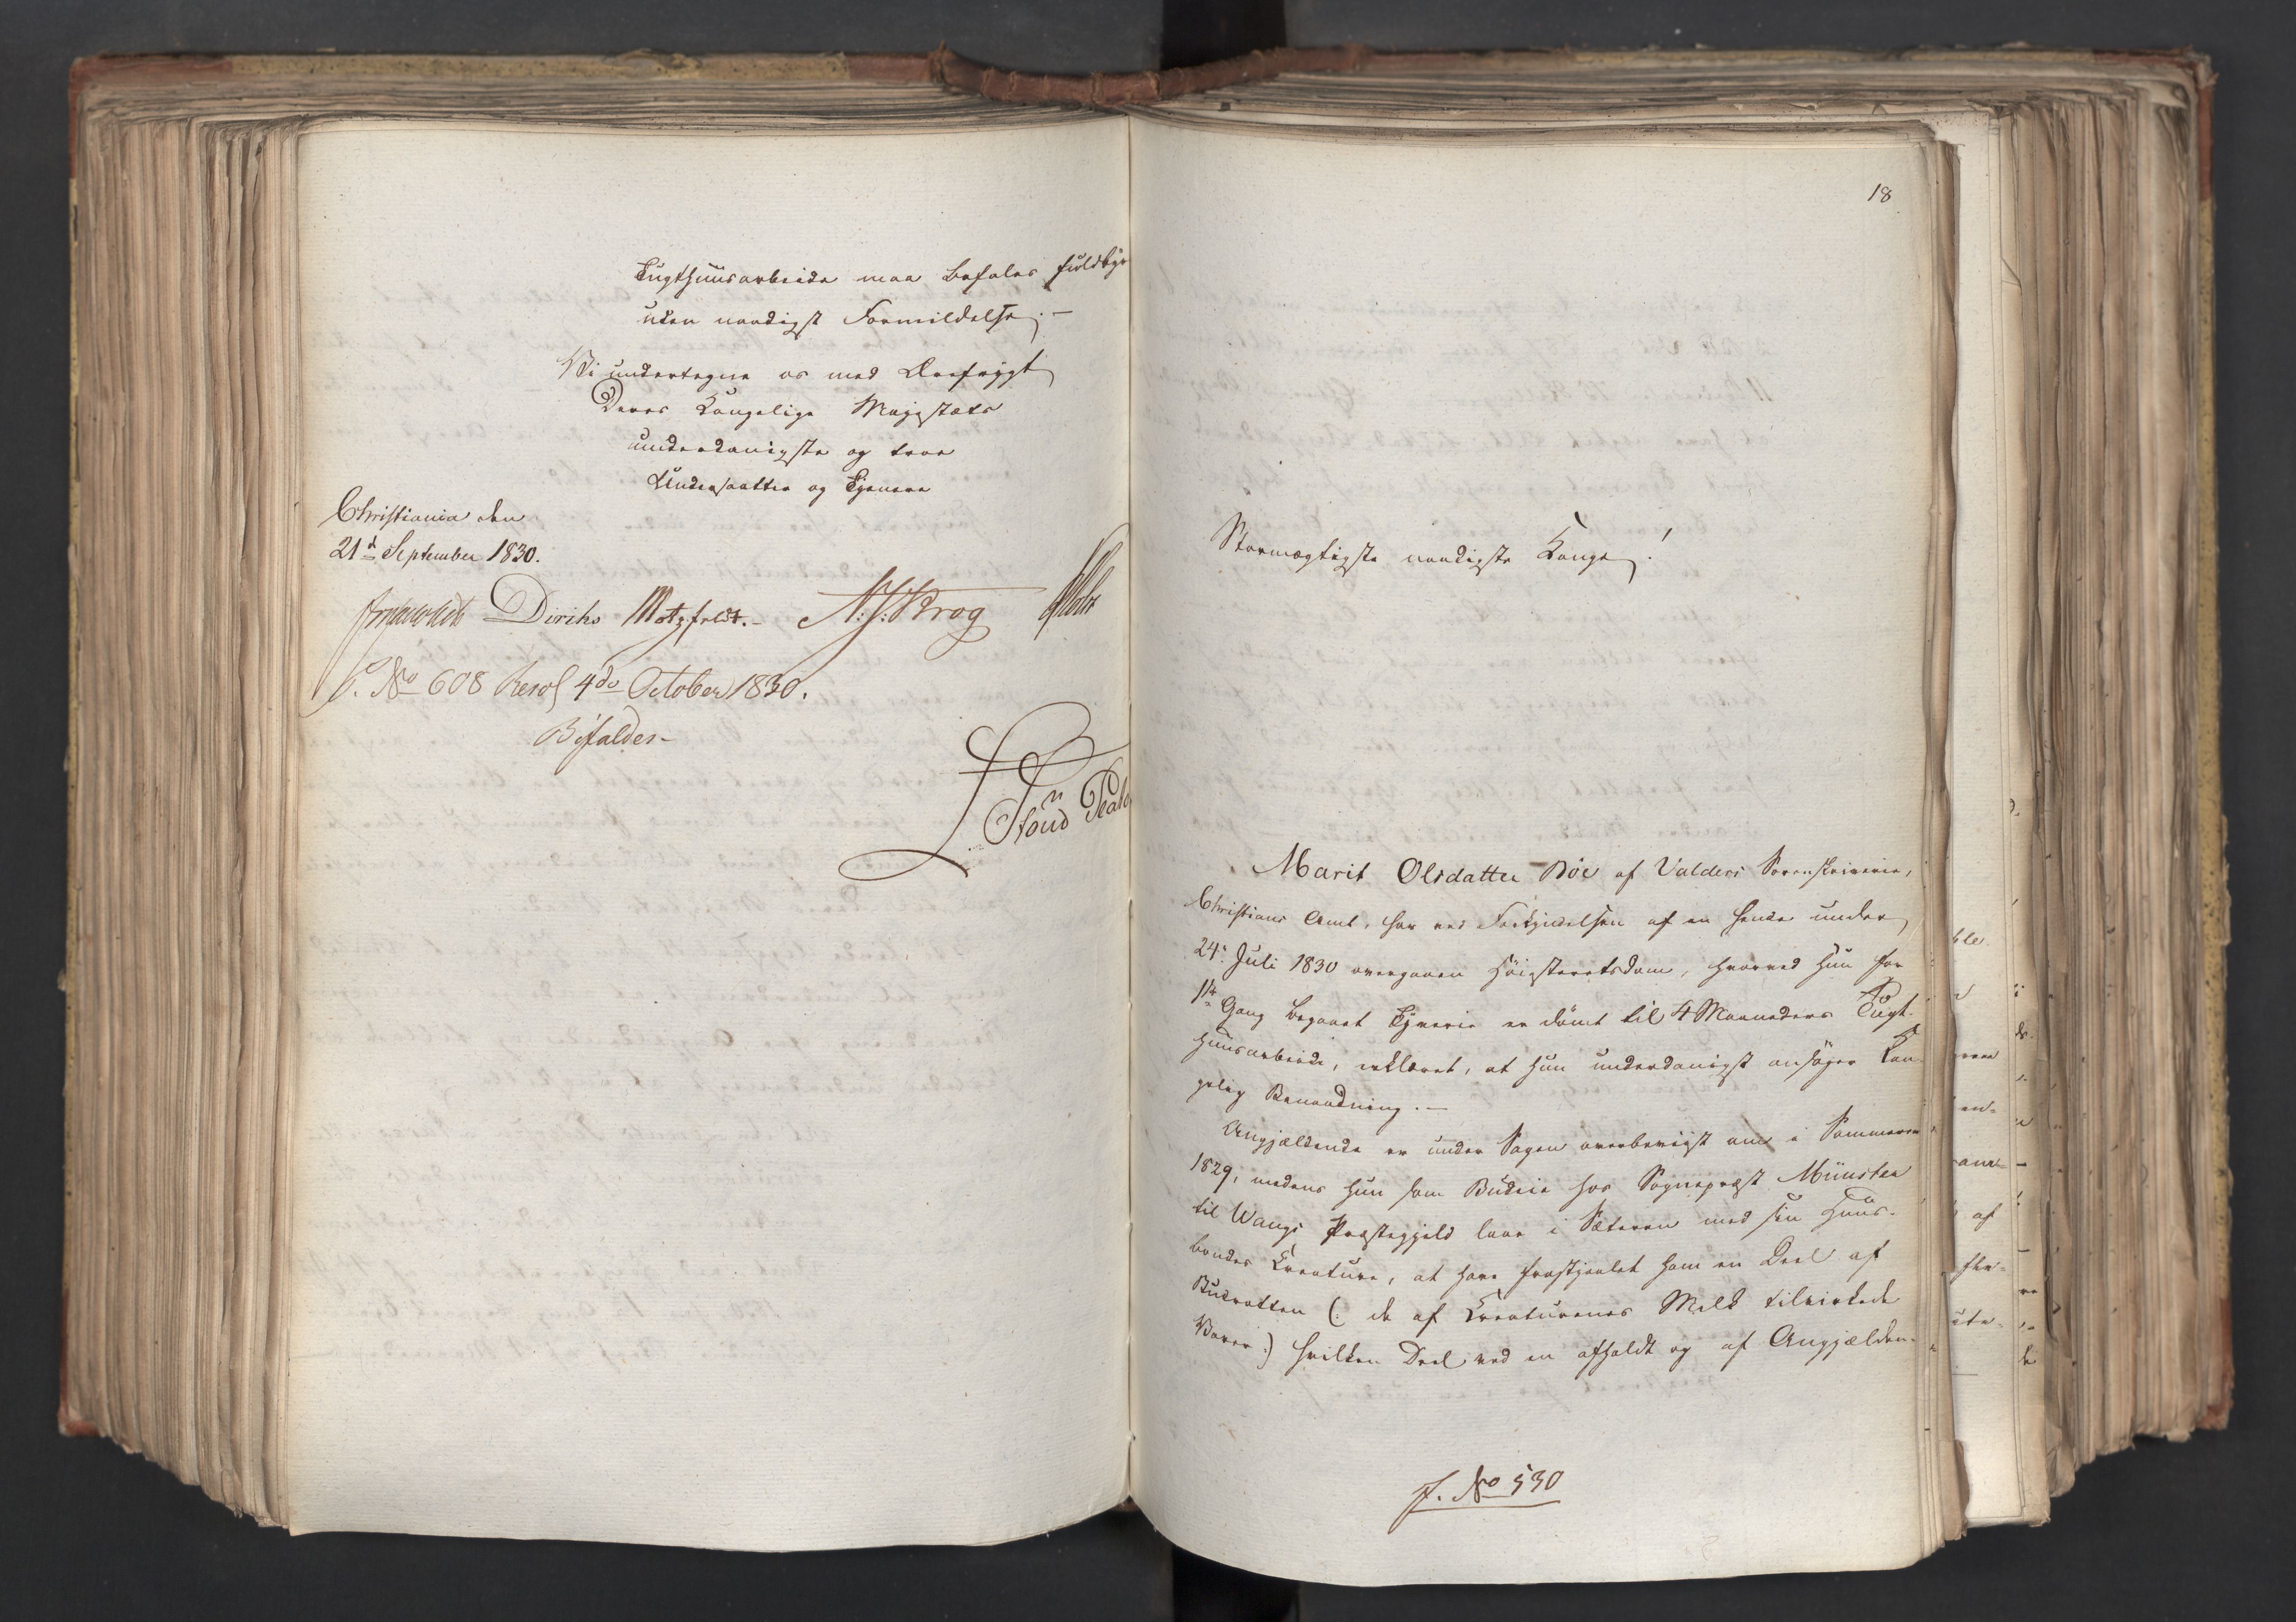 Tugthuusarbeide maa befales fuldbyr
uden naadigst Formildelse. —
Vi undertegne os med Ærefrygt
Deres Kongelige Majestæts
underdanigste og troe
Undersaatter og Tjenere
Christiania den
21d September 1830.
Diriks Motzfeldt. – N. J. Krog
S. No 608 Resol 4de October 1830.
Bifaldes –
18
Stormægtigste naadigste Konge!
Marit Olsdatter Böe af Valders Sorenskriverie,
Christians Amt, har ved Forkyndelsen af en hende under
24. Juli 1830 overgaaen Höiesteretsdom, hvorved hun for
1ste Gang begaaet Tyverie er dömt til 4 Maaneders Tugt-
huusarbeide, erklæret, at hun underdanigst ansöger Kon-
gelig Benaadning. —
Angjældende er under Sagen overbeviist om i Sommeren
1829, medens hun som Budeie hos Sognepræst Münster
til Wangs Præstegjeld laae i Sæteren med sin Huus-
bondes Creature, at have frastjaalet ham en Deel af
Budrotten (: de af Creaturenes Melk tilvirkede
Varer :) hvilken Deel ved en afholdt og af Angjælden-
J. No 530